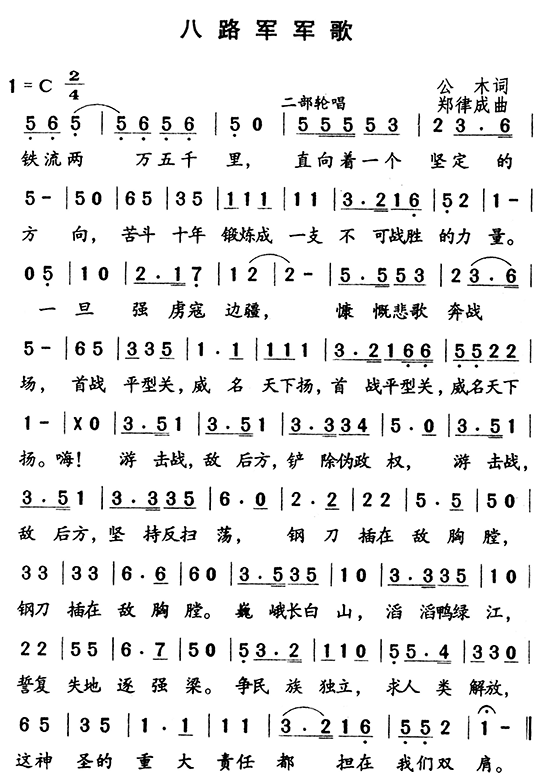 八路军军歌
1=C 2/4
公木词
二部轮唱 郑律成曲
5 6 5 | 5 6 5 6 | 5 0 | 5 5 5 5 3 | 2 3 . 6 |
铁流两 万五千 里， 直向着一个 坚定 的
5 - | 5 0 | 6 5 | 3 5 | 1 1 1 | 1 1 | 3 . 2 1 6 | 5 2 | 1 - |
方 向，苦斗 十年 锻炼成 一支 不 可战胜 的力 量。
0 5 | 1 0 | 2 . 1 7 | 1 2 | 2 - | 5 . 5 5 3 | 2 3 . 6 |
一 旦 强 虏寇 边疆， 慷 慨悲歌 奔战
5 - | 6 5 | 3 3 5 | 1 . 1 | 1 1 1 | 3 . 2 1 6 6 | 5 5 2 2 |
场， 首战 平型关，威 名 天下扬，首 战平型关，威名天下
1 - | X 0 | 3 . 5 1 | 3 . 5 1 | 3 . 3 3 4 | 5 . 0 | 3 . 5 1 |
扬。嗨！ 游 击战，敌 后方，铲 除伪政 权， 游 击战，
3 . 5 1 | 3 . 3 3 5 | 6 . 0 | 2 . 2 | 2 2 | 5 . 5 | 5 0 |
敌 后方，坚 持反扫 荡， 钢 刀 插在 敌 胸 膛，
3 3 | 3 3 | 6 . 6 | 6 0 | 3 . 5 3 5 | 1 0 | 3 . 3 3 5 | 1 0 |
钢刀 插在 敌 胸 膛。巍 峨长白 山，滔 滔鸭绿 江，
2 2 | 5 5 | 6 . 7 | 5 0 | 5 3 . 2 | 1 1 0 | 5 5 . 4 | 3 3 0 |
誓复 失地 逐强 梁。争民 族 独立，求人 类 解放，
6 5 | 3 5 | 1 . 1 | 1 1 | 3 . 2 1 6 | 5 5 2 | 1 - ‖
这神 圣的 重 大 责任 都 担在 我们双 肩。